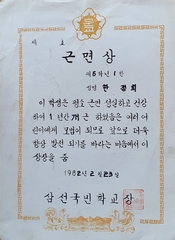 제 호
근면상
제5학년1반
성명 한경희
이 학생은 평소 근면 성실하고 건강
하여 1년간 개근 하였음은 여러 어
린이에게 모범이 되므로 앞으로 더욱
향상 발전 되기를 바라는 마음에서 이
상장을 줌
1982년 2월 23일
삼선국민학교장